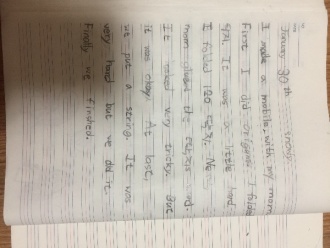 January 30th snowy
I made a mobile, with my mom.
First I did origami. I folded
It was a little hard.
I folded 120 We
mom
It was very tricky. But
it was okay. At last,
we put a string. It was
very hard but we did it.
Finally we finished.